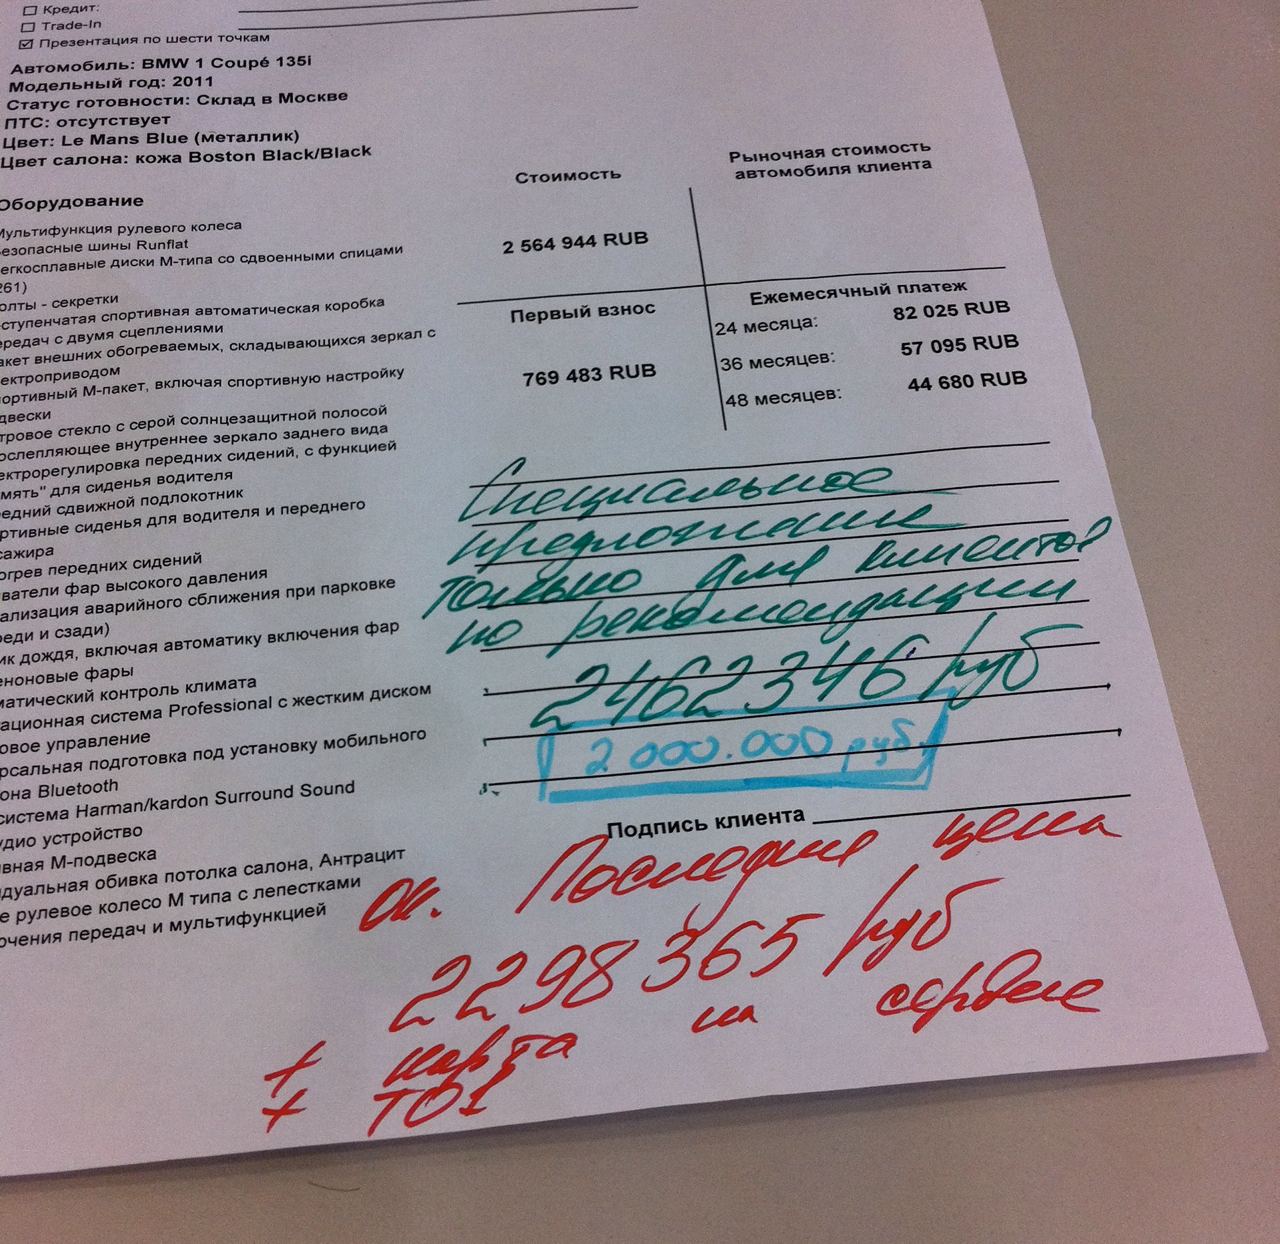 Кредит:
Trade-In
Презентация по шести точкам
Автомобиль: BMW 1 Coupé 135i
Модельный год: 2011
Статус готовности: Склад в Москве
ПТС: отсутствует
Цвет: Le Mans Blue (металлик)
Цвет салона: кожа Boston Black/Black
Оборудование
Мультифункция рулевого колеса
езопасные шины Runflat
егкосплавные диски М-типа со сдвоенными спицами
261)
олты - секретки
ступенчатая спортивная автоматическая коробка
ередач с двумя сцеплениями
акет внешних обогреваемых, складывающихся зеркал с
ектроприводом
ортивный М-пакет, включая спортивную настройку
двески
тровое стекло с серой солнцезащитной полосой
ослепляющее внутреннее зеркало заднего вида
ектрорегулировка передних сидений, с функцией
мять" для сиденья водителя
едний сдвижной подлокотник
ртивные сиденья для водителя и переднего
сажира
огрев передних сидений
ватели фар высокого давления
ализация аварийного сближения при парковке
реди и сзади)
ик дождя, включая автоматику включения фар
еноновые фары
матический контроль климата
гационная система Professional с жестким диском
овое управление
рсальная подготовка под установку мобильного
она Bluetooth
система Harman/kardon Surround Sound
удио устройство
ивная М-подвеска
идуальная обивка потолка салона, Антрацит
е рулевое колесо М типа с лепестками
ючения передач и мультифункцией
Стоимость
2 564 944 RUB
Рыночная стоимость
автомобиля клиента
Первый взнос
769 483 RUB
Ежемесячный платеж
24 месяца: 82 025 RUB
36 месяцев: 57 095 RUB
48 месяцев: 44 680 RUB
Специальное
предложение
только для клиентов
по рекомендации
2462346 руб
2 000.000 руб.
Подпись клиента
Ок. Последняя цена
2298365 руб
+ карта на сервис
+ ТО1